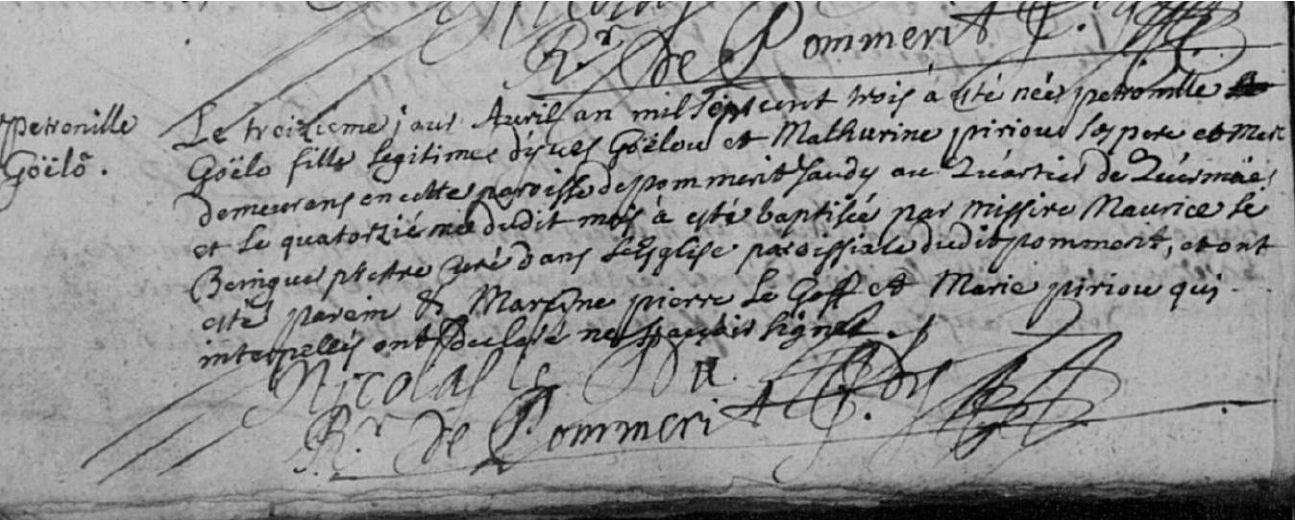 Rr. de Pommerit
petronille
Goëlo.
Le treizieme jour Avril an mil sept cent trois à esté née petronille
Goëlo fille legitime d'yves Goëlou et Mathurine piriou ses pere et mere
demeurans en cette paroisse de pommerit Jaudy au Quartier de
et le quatorziéme dudit mois à esté baptisée par Missire Maurice le
prettre curé dans l'Esglise paroissiale dudit pommerit, et ont
esté parein & Mareine pierre le Goff et Marie piriou qui
interpellés ont declaré ne sçavoir signer.
Nicolas le
Rr. de Pommerit